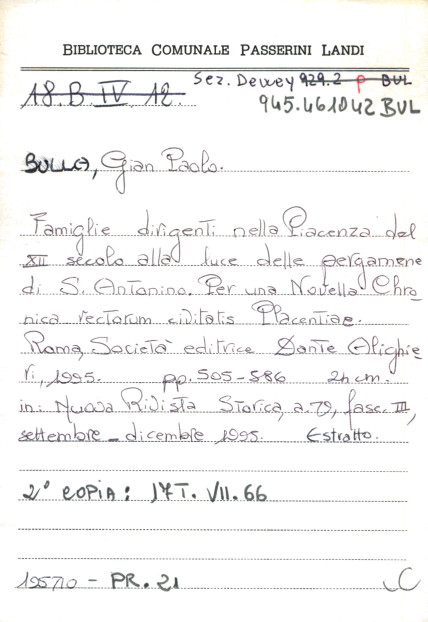 BIBLIOTECA COMUNALE PASSERINI LANDI
Sez. Dewey 929.2 p BUL
18.B IV 12.
945.461042 BUL
BULLA, Gian Paolo.
Famiglie dirigenti nella Piacenza del
XII secolo alla luce delle pergamene
di S. Antonino. Per una Novella Chro
nica rectorum civitatis Placentiae.
Roma, Società editrice Dante Alighie
ri, 1995. pp. 505-586 24 cm.
in: Nuova Rivista Storica, a. 79, fasc. III,
settembre - dicembre 1995. Estratto.
2° COPIA: 17T. VII. 66
195710 - PR. 21